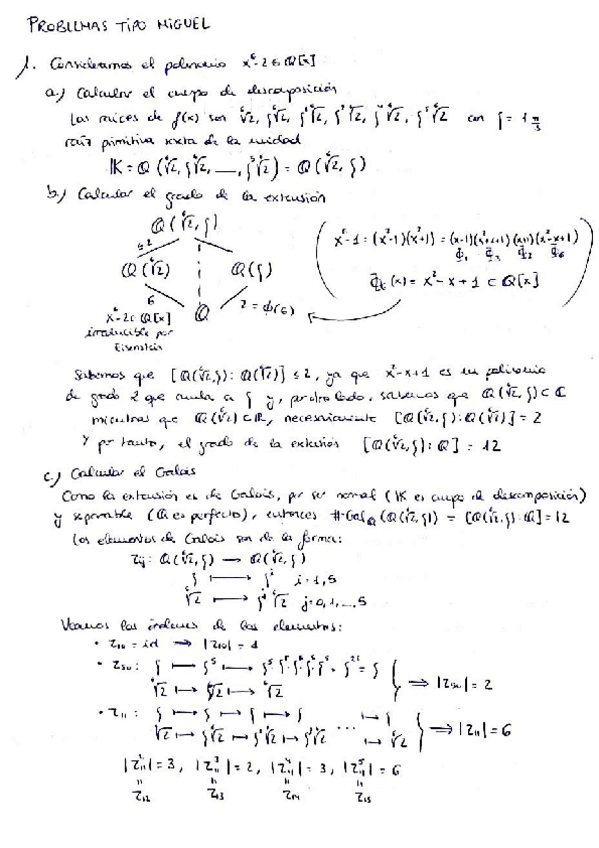 PROBLEMAS TIPO MIGUEL
1. Consideramos el polinomio x⁶-2 ∈ Q[x]
a.) Calcular el cuerpo de descomposición
Las raíces de f(x) son ⁶√2, ζ⁶√2, ζ²⁶√2, ζ³⁶√2, ζ⁴⁶√2, ζ⁵⁶√2 con ζ = 1 π/3
raíz primitiva sexta de la unidad
K = Q(⁶√2, ζ⁶√2, __, ζ⁵⁶√2) = Q(⁶√2, ζ)
b.) Calcular el grado de la extensión
Q(⁶√2, ζ)
≤2
Q(⁶√2) Q(ζ)
6 Q 2 = φ(6)
x⁶-2 ∈ Q[x]
irreducible por
Eisenstein
x⁶-1 = (x³-1)(x³+1) = (x-1)(x²+x+1)(x+1)(x²-x+1)
Φ₁ Φ₃ Φ₂ Φ₆
Φ₆(x) = x²-x+1 ⊂ Q[x]
Sabemos que [Q(⁶√2,ζ) : Q(⁶√2)] ≤ 2, ya que x²-x+1 es un polinomio
de grado 2 que anula a ζ y, por otro lado, sabemos que Q(⁶√2,ζ) ⊂ C
mientras que Q(⁶√2) ⊂ R, necesariamente [Q(⁶√2,ζ) : Q(⁶√2)] = 2
Y por tanto, el grado de la extensión [Q(⁶√2,ζ) : Q] = 12
c.) Calcular el Galois
Como la extensión es de Galois, por ser normal (K es cuerpo de descomposición)
y separable (Q es perfecto), entonces #Gal_Q(Q(⁶√2,ζ)) = [Q(⁶√2,ζ):Q] = 12
Los elementos de Galois son de la forma:
τij : Q(⁶√2,ζ) → Q(⁶√2,ζ)
ζ ↦ ζⁱ i=1,5
⁶√2 ↦ ζʲ⁶√2 j=0,1,...,5
Veamos los órdenes de los elementos:
• τ₁₀ = id ⇒ |τ₁₀| = 1
• τ₅₀ : ζ ↦ ζ⁵ ↦ ζ⁵·ζ⁵·ζ⁵·ζ⁵·ζ⁵ = ζ²⁵ = ζ
⁶√2 ↦ ⁶√2 ↦ ⁶√2 ⇒ |τ₅₀| = 2
• τ₁₁ : ζ ↦ ζ ↦ ζ ↦ ζ ... ↦ ζ
⁶√2 ↦ ζ⁶√2 ↦ ζ²⁶√2 ↦ ζ³⁶√2 ... ↦ ⁶√2 ⇒ |τ₁₁| = 6
|τ₁₁²| = 3, |τ₁₁³| = 2, |τ₁₁⁴| = 3, |τ₁₁⁵| = 6
" " " "
τ₁₂ τ₁₃ τ₁₄ τ₁₅